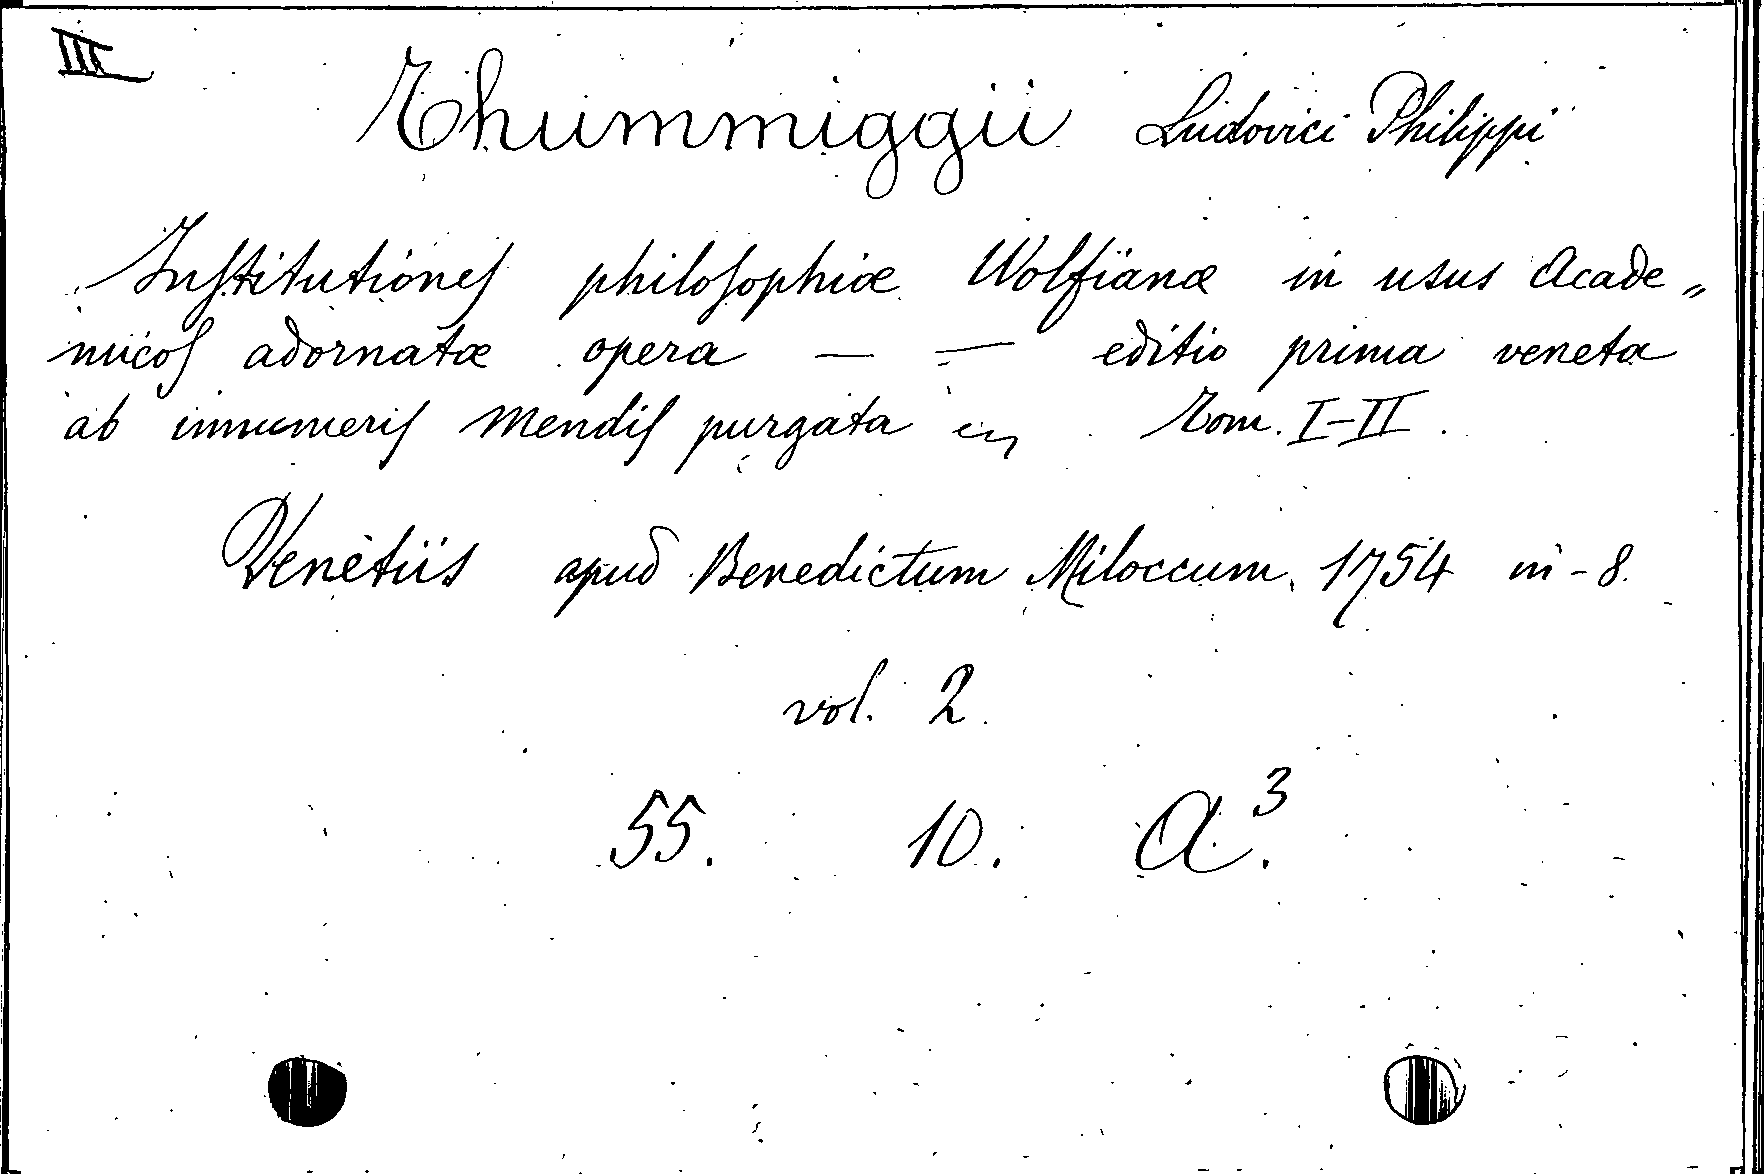 III
Thummiggii Ludovici Philippi
Inſtitutioneſ philoſophiæ Wolfianæ in usus Acade„
micoſ adornatæ opera — — editio prima veneta
ab innumeriſ mendiſ purgata Tom. I-II.
Venetiis apud Benedictum Miloccum 1754 in-8.
vol. 2.
55. 10. A³.